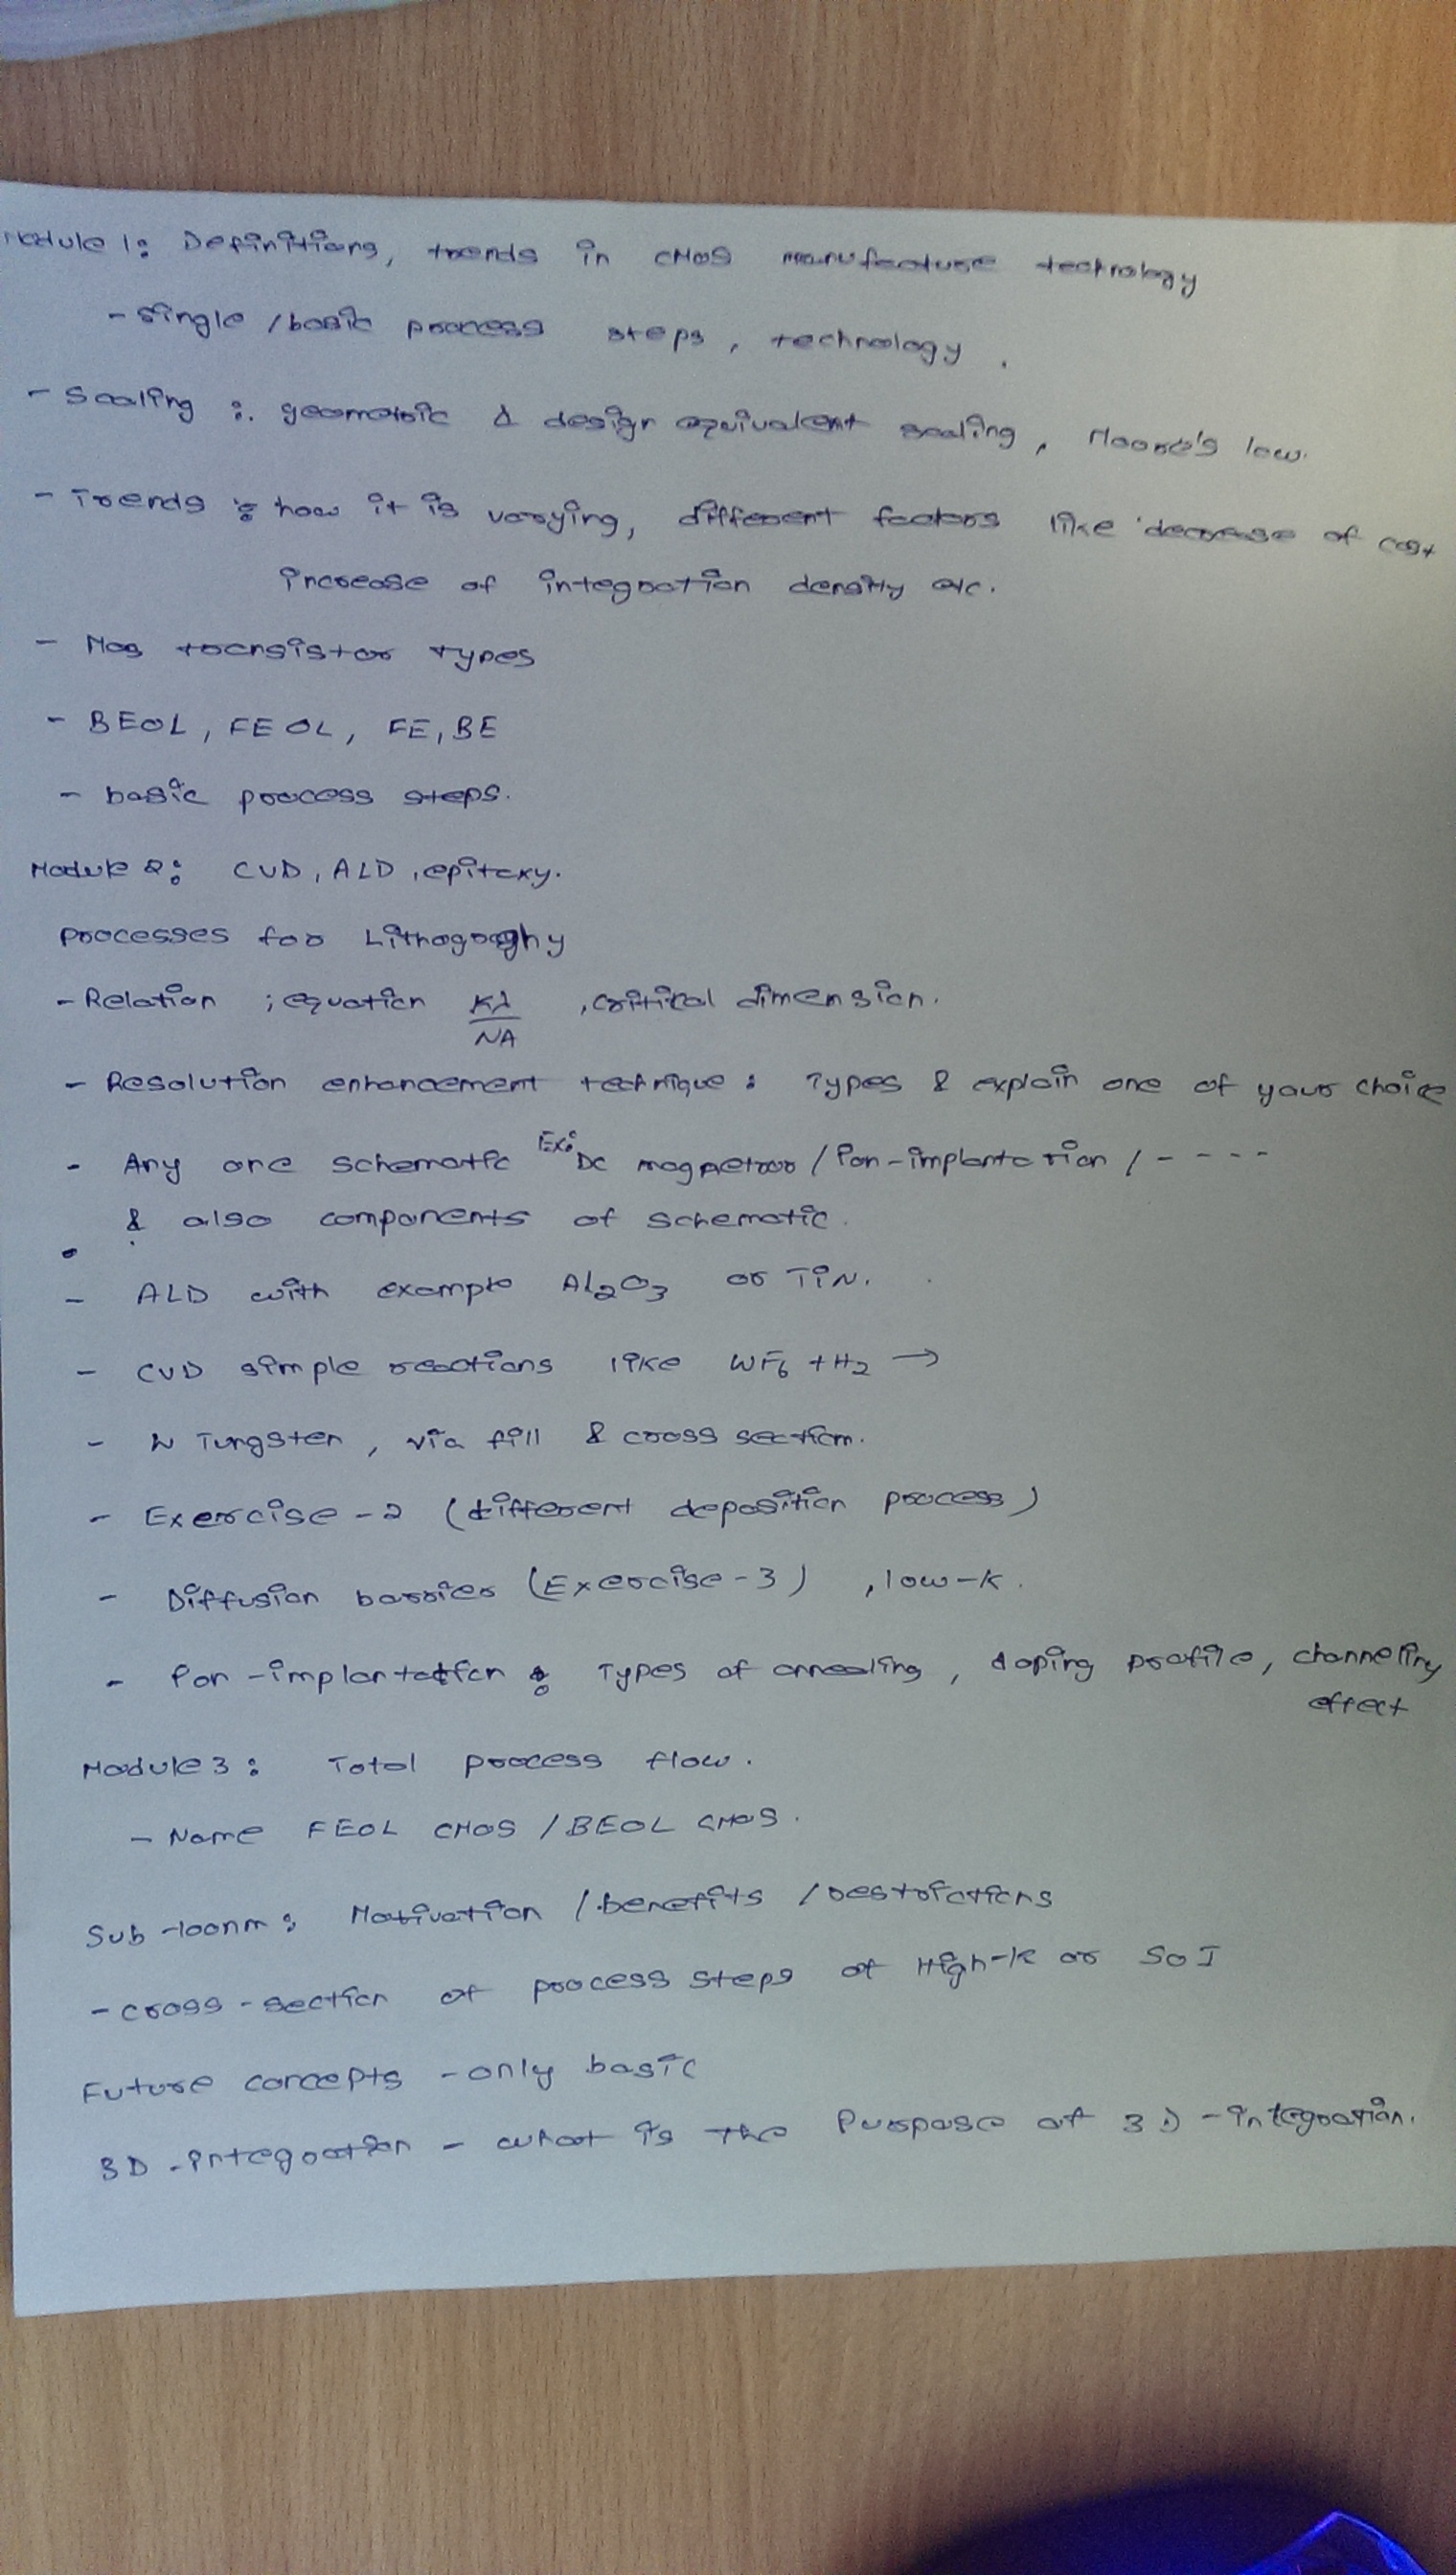 Module 1: Definitions, trends in CMOS manufacture technology
- Single / basic process steps, technology.
- Scaling : geometric & design equivalent scaling, Moore's low.
- Trends : how it is varying, different factors like decrease of cost
increase of integration density etc.
- Mos transistor types
- BEOL, FEOL, FE, BE
- basic process steps.
Module 2: CVD, ALD, epitaxy.
processes for Lithography
- Relation ; equation Kλ/NA , critical dimension.
- Resolution enhancement technique : Types & explain one of your choice
- Any one schematic Ex: DC magnetron / ion-implantation / - - - -
& also components of schematic.
- ALD with example Al2O3 or TiN.
- CVD simple reactions like WF6 + H2 →
- W Tungsten, via fill & cross section.
- Exercise - 2 (different deposition process)
- Diffusion barrier (Exercise - 3) , low-k.
- ion - implantation : Types of annealing, doping profile, channeling
effect
Module 3 : Total process flow.
- Name FEOL CMOS / BEOL CMOS.
Sub -100nm : Motivation / benefits / restrictions
- cross - section of process steps of High-k or SOI
Future concepts - only basic
3D - integration - what is the Purpose of 3D - integration.